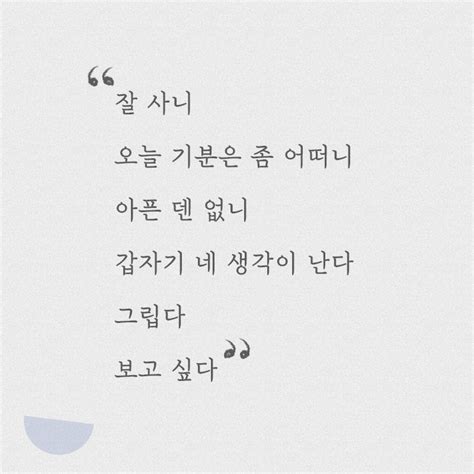 “잘 사니
오늘 기분은 좀 어떠니
아픈 덴 없니
갑자기 네 생각이 난다
그립다
보고 싶다”